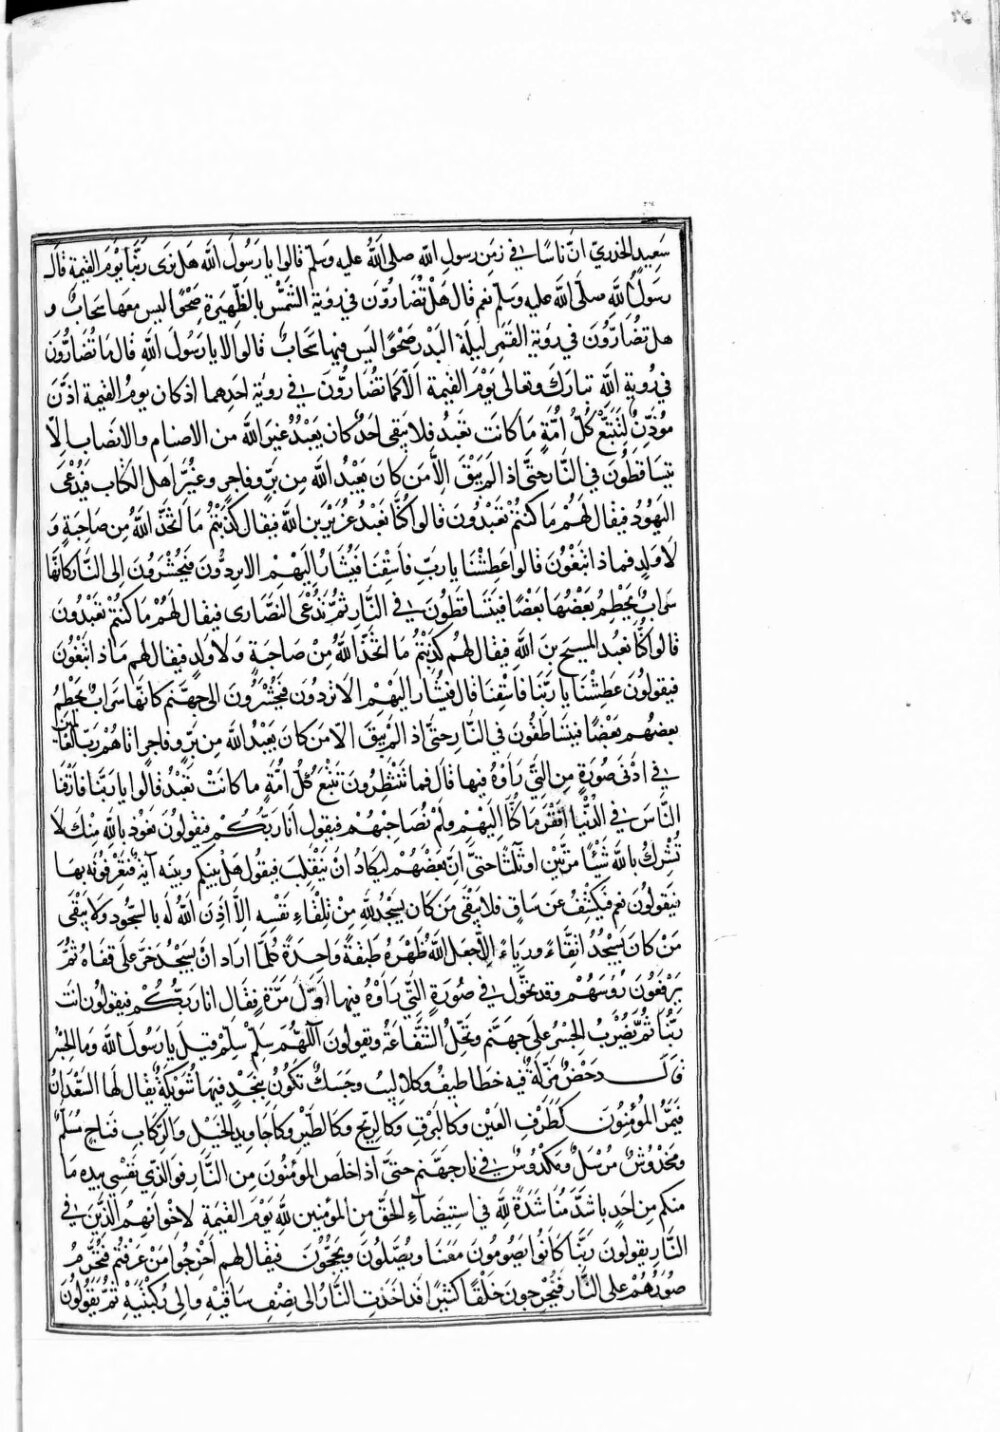 سَعِيدٍ الخدريّ انّ ناسًا في زمن رسول الله صلى الله عليه وسلم قالوا يا رسول الله هل نرى ربّنا يوم القيمة قال
رسول الله صلى الله عليه وسلم نعم قال هل تضارّون في روية الشمس بالظهيرة صحوًا ليس معها سحابٌ و
هل تضارّون في روية القمر ليلة البدر صحوًا ليس فيها سحابٌ قالوا لا يا رسول الله قال ما تضارّون
في روية الله تبارك وتعالى يوم القيمة الّا كما تضارّون في روية احدهما اذ كان يوم القيمة اذّن
مؤذّنٌ لتتّبع كلّ امّةٍ ما كانت تعبد فلا يبقى احدٌ كان يعبد غير الله من الاصنام والانصاب الّا
يتساقطون في النّار حتّى اذ الم يبق الّا من كان يعبد الله من برٍّ وفاجرٍ وغبّر اهل الكتاب فيدعى
اليهود فيقال لهم ما كنتم تعبدون قالوا كنّا نعبد عزير بن الله فيقال كذبتم ما اتّخذ الله من صاحبةٍ و
لا ولدٍ فماذا تبغون قالوا عطشنا يا ربّ فاسقنا فيشار اليهم الا تردون فيحشرون الى النّار كانّها
سرابٌ يحطم بعضها بعضًا فيتساقطون في النّار ثمّ تدعى النّصارى فيقال لهم ما كنتم تعبدون
قالوا كنّا نعبد المسيح بن الله فيقال لهم كذبتم ما اتّخذ الله من صاحبةٍ ولا ولدٍ فيقال لهم ماذا تبغون
فيقولون عطشنا يا ربّنا فاسقنا قال فيشار اليهم الا تردون فيحشرون الى جهنّم كانّها سرابٌ يحطم
بعضهم بعضًا فيتساطقون في النار حتّى اذ الم يبق الّا من كان يعبد الله من برٍّ وفاجرٍ اتاهم ربّ العالمين
في ادنى صورةٍ من التي راوه فيها قال فما تنتظرون تتبع كلّ امّةٍ ما كانت تعبد قالوا يا ربّنا فارقنا
النّاس في الدّنيا افقر ما كنّا اليهم ولم نصاحبهم فيقول انا ربّكم فيقولون نعوذ بالله منك لا
نشرك بالله شيئًا مرّتين او ثلثًا حتّى انّ بعضهم ليكاد ان ينقلب فيقول هل بينكم وبينه آيةٌ فتعرفونه بها
فيقولون نعم فيكشف عن ساقٍ فلا يبقى من كان يسجد لله من تلقاء نفسه الّا اذن الله له بالسّجود ولا يبقى
من كان يسجد اتّقاءً ورياءً الّا جعل الله ظهره طبقةً واحدةً كلّما اراد ان يسجد خرّ على قفاه ثمّ
يرفعون رؤسهم وقد تحوّل في صورة التي راوه فيها اوّل مرّةٍ فقال انا ربّكم فيقولون انت
ربّنا ثمّ يضرب الجسر على جهنّم وتحلّ الشّفاعة ويقولون اللّهمّ سلّم سلّم قيل يا رسول الله وما الجسر
قال دحضٌ مزلّةٌ فيه خطاطيف وكلاليب وحسكٌ تكون بنجدٍ فيها شويكةٌ يقال لها السّعدان
فيمرّ المؤمنون كطرف العين وكالبرق وكالريح وكالطير وكاجاويد الخيل والرّكاب فناجٍ مسلّمٌ
ومخدوشٌ مرسلٌ ومكدوسٌ في نار جهنّم حتّى اذ اخلص المؤمنون من النّار فوالّذي نفسي بيده ما
منكم من احدٍ باشدّ مناشدةً لله في استيضاء الحقّ من المؤمنين لله يوم القيمة لاخوانهم الّذين في
النّار يقولون ربّنا كانوا يصومون معنا ويصلّون ويحجّون فيقال لهم اخرجوا من عرفتم فتحرّم
صورهم على النّار فيخرجون خلقًا كثيرًا قد اخذت النّار الى نصف ساقيه والى ركبتيه ثمّ يقولون